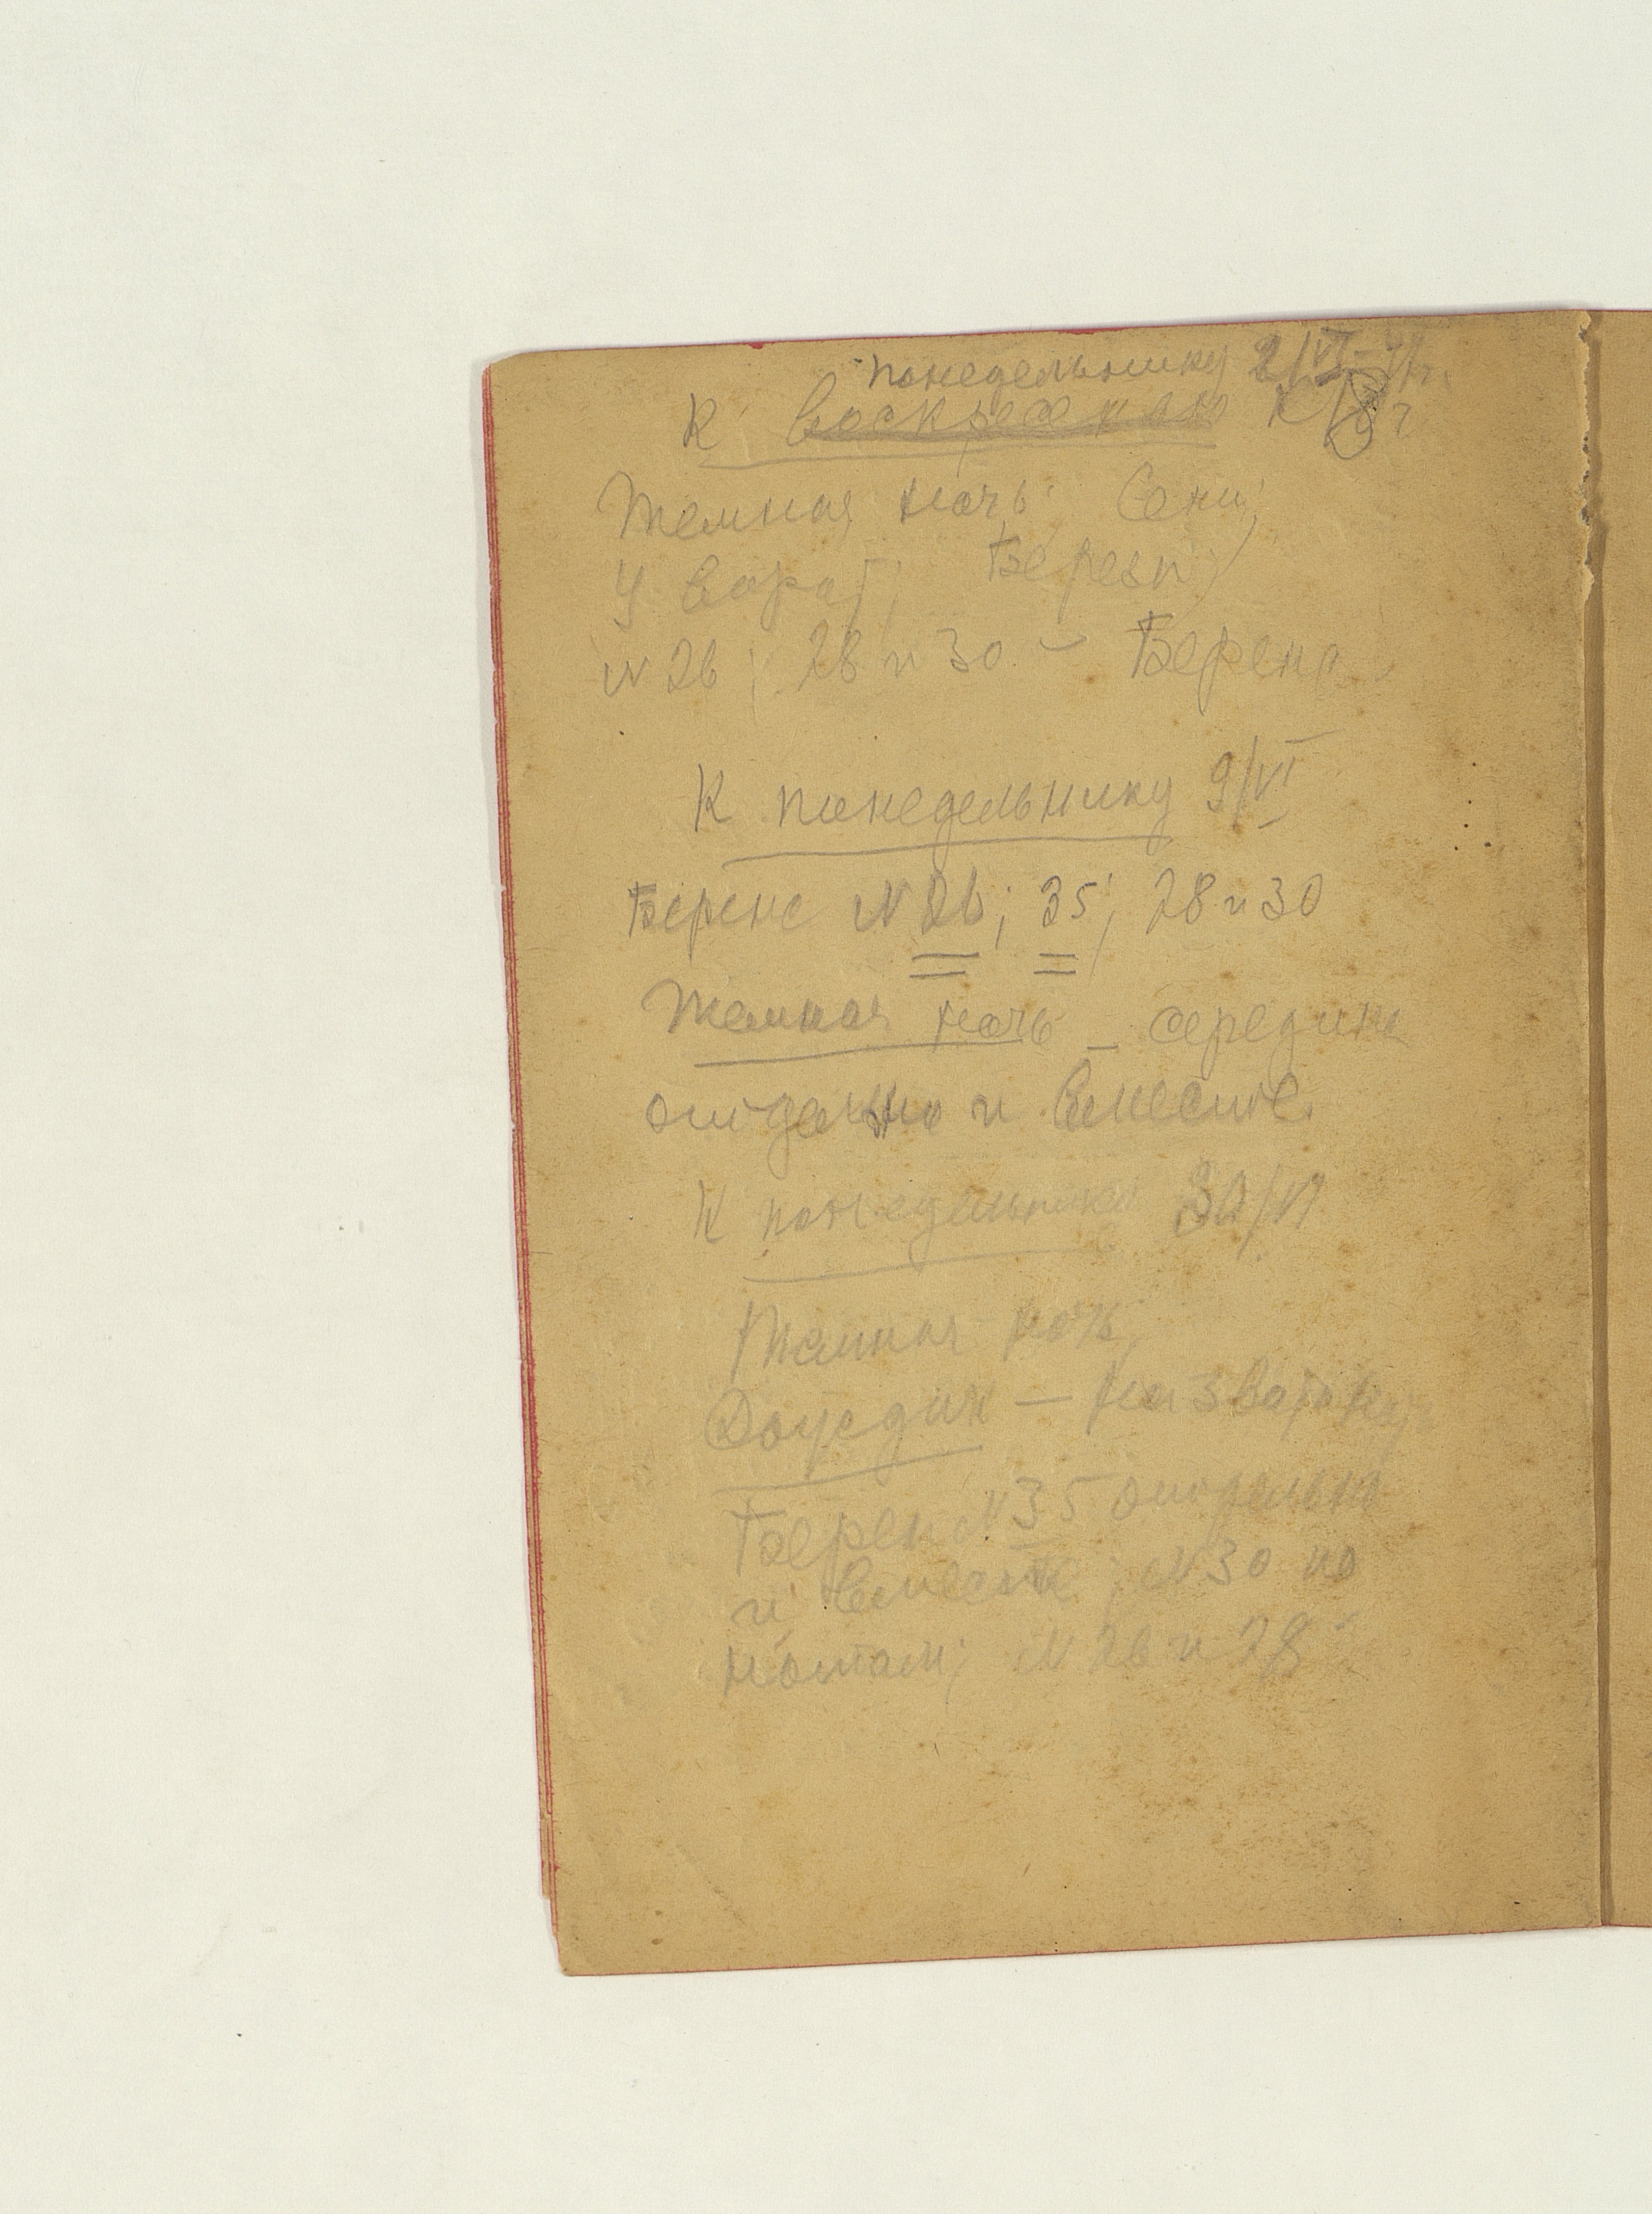 понедельнику 2/VI-
К воскресенью к 8 ч
Темная ночь; Сени;
У ворот; Березы;
N 26; 28 и 30 – Беренс
К понедельнику 9/VI
Беренс N 26; 35; 28 и 30
Темная ночь – середина
отдельно и вместе.
К понедельнику 30/VI
Темная ночь
— Наизватору
Берен N 35 отдельно
и вместе; N 30 по
нотам; N 26 и 28